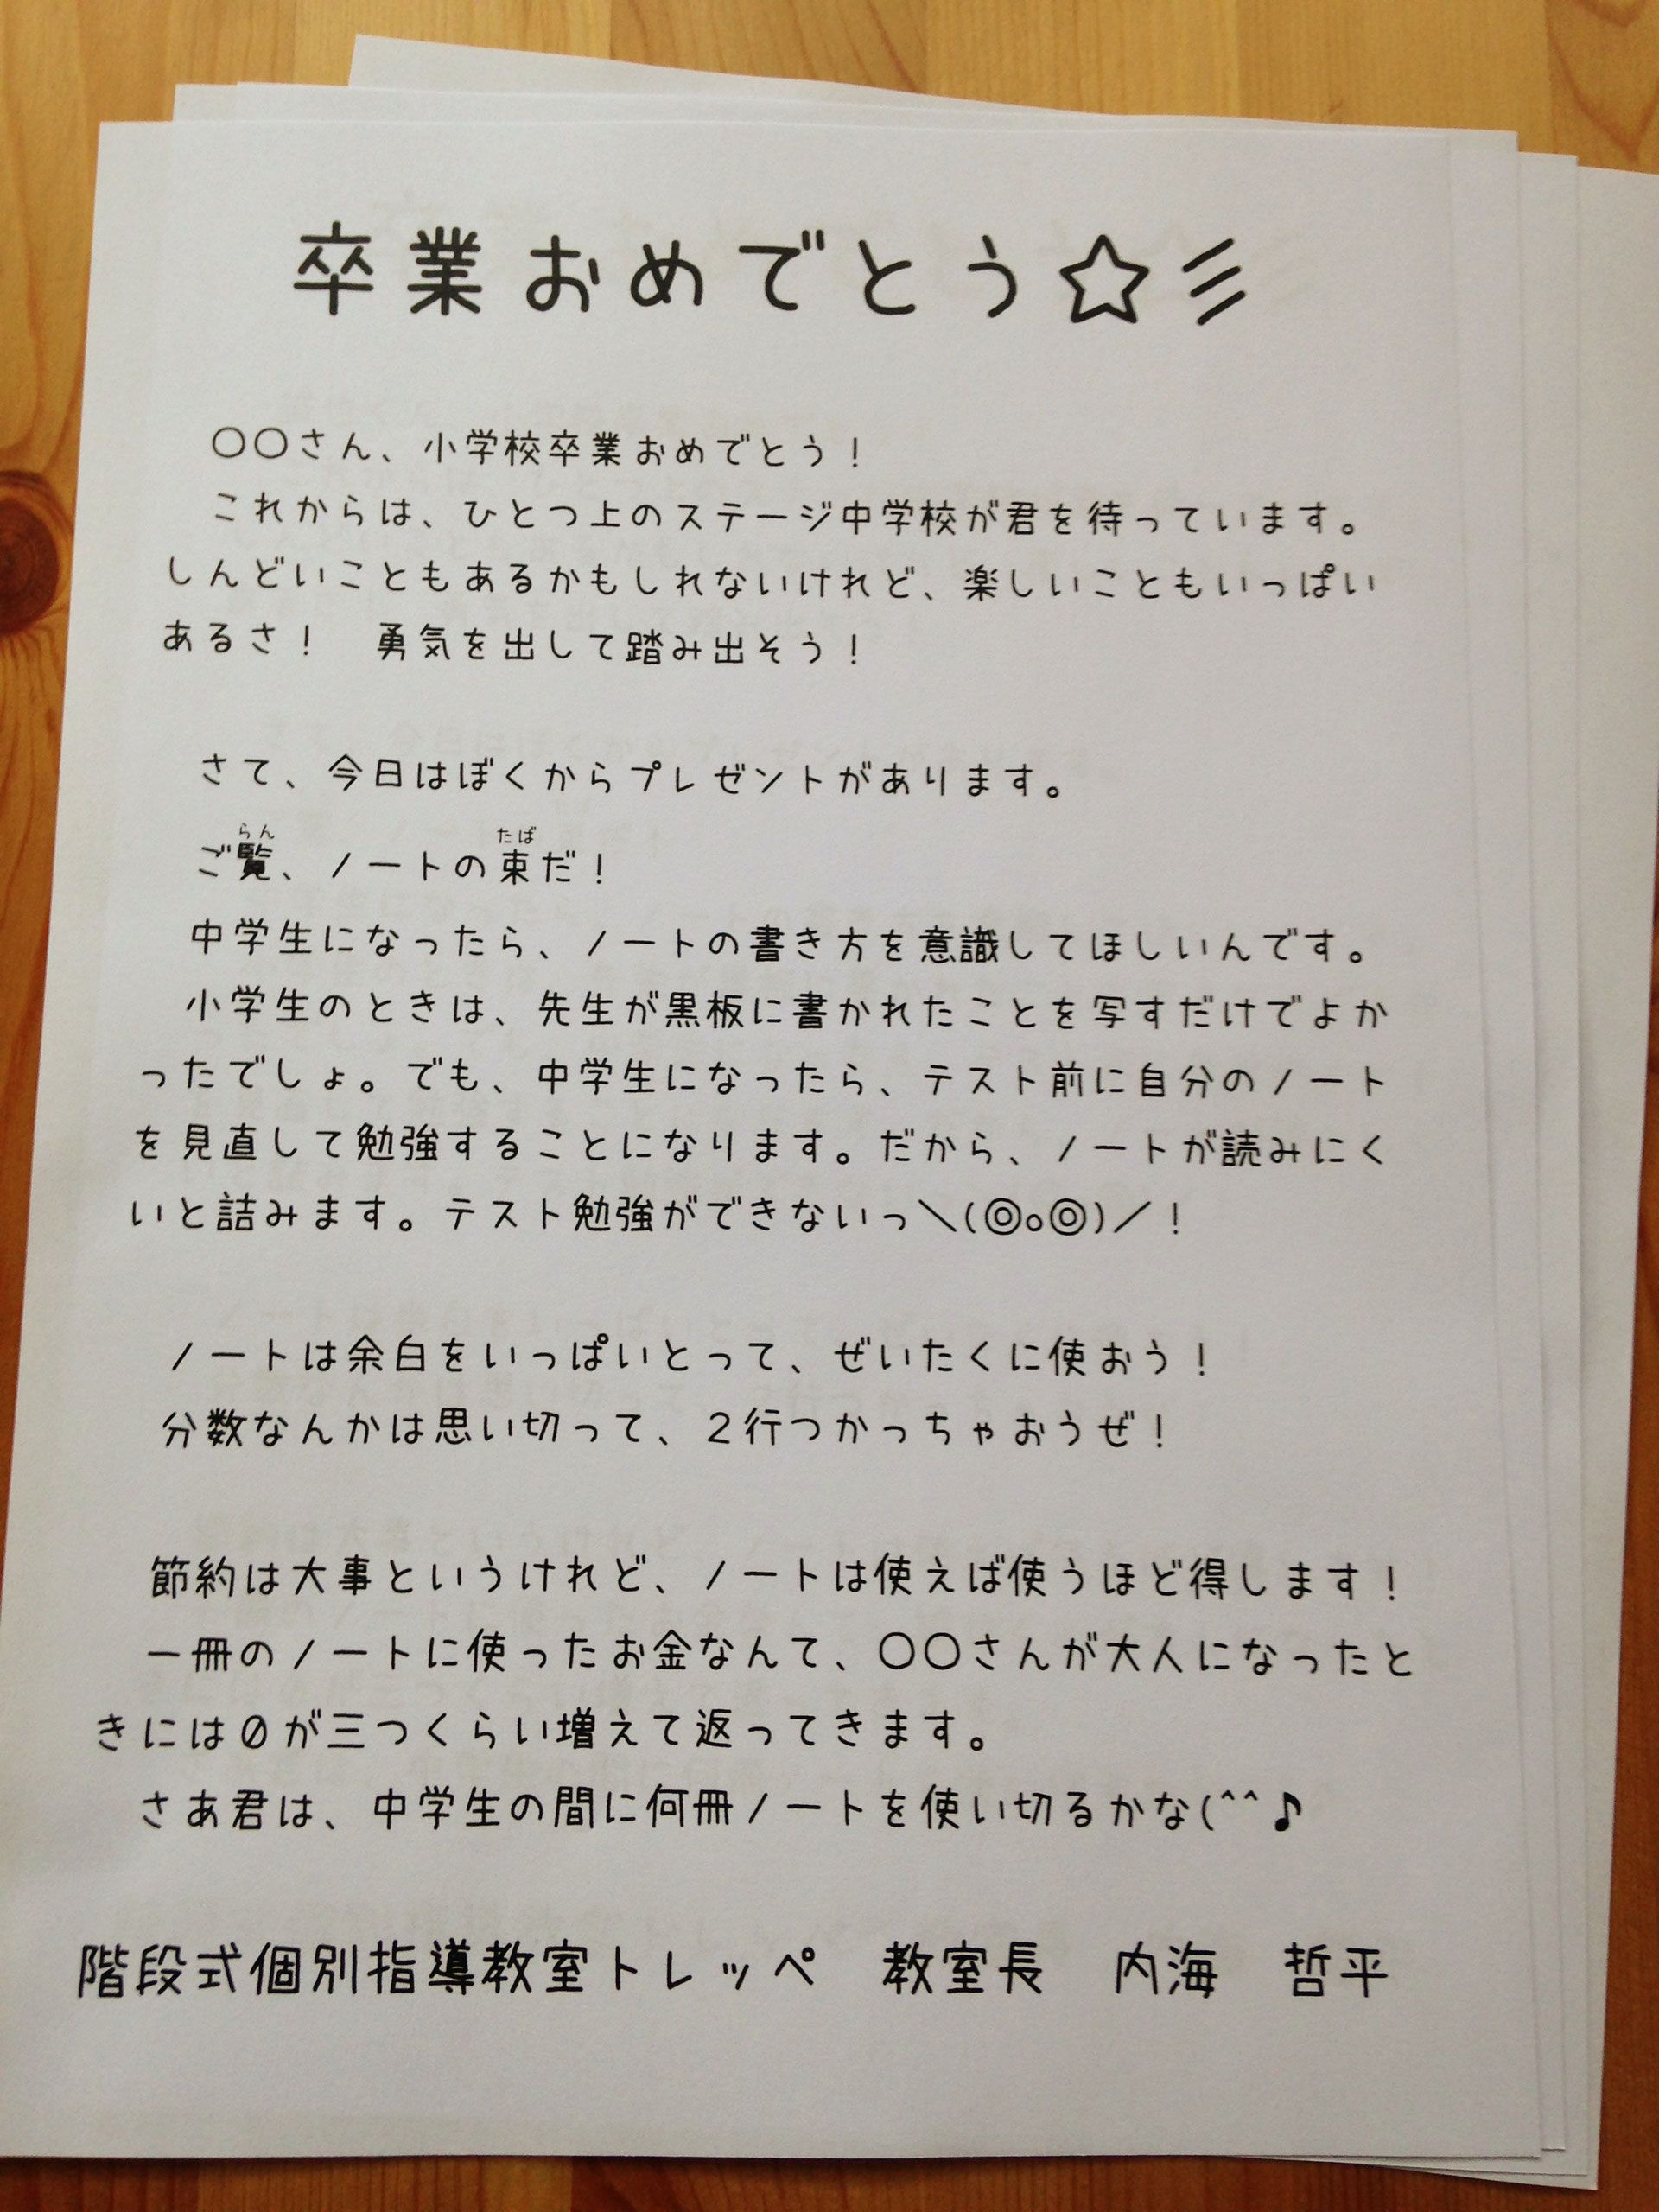 卒業おめでとう☆彡
〇〇さん、小学校卒業おめでとう！
これからは、ひとつ上のステージ中学校が君を待っています。
しんどいこともあるかもしれないけれど、楽しいこともいっぱい
あるさ！　勇気を出して踏み出そう！
さて、今日はぼくからプレゼントがあります。
らん　たば
ご覧、ノートの束だ！
中学生になったら、ノートの書き方を意識してほしいんです。
小学生のときは、先生が黒板に書かれたことを写すだけでよか
ったでしょ。でも、中学生になったら、テスト前に自分のノート
を見直して勉強することになります。だから、ノートが読みにく
いと詰みます。テスト勉強ができないっ＼(◎o◎)／！
ノートは余白をいっぱいとって、ぜいたくに使おう！
分数なんかは思い切って、２行つかっちゃおうぜ！
節約は大事というけれど、ノートは使えば使うほど得します！
一冊のノートに使ったお金なんて、〇〇さんが大人になったと
きには０が三つくらい増えて返ってきます。
さあ君は、中学生の間に何冊ノートを使い切るかな(^^♪
階段式個別指導教室トレッペ　教室長　内海　哲平